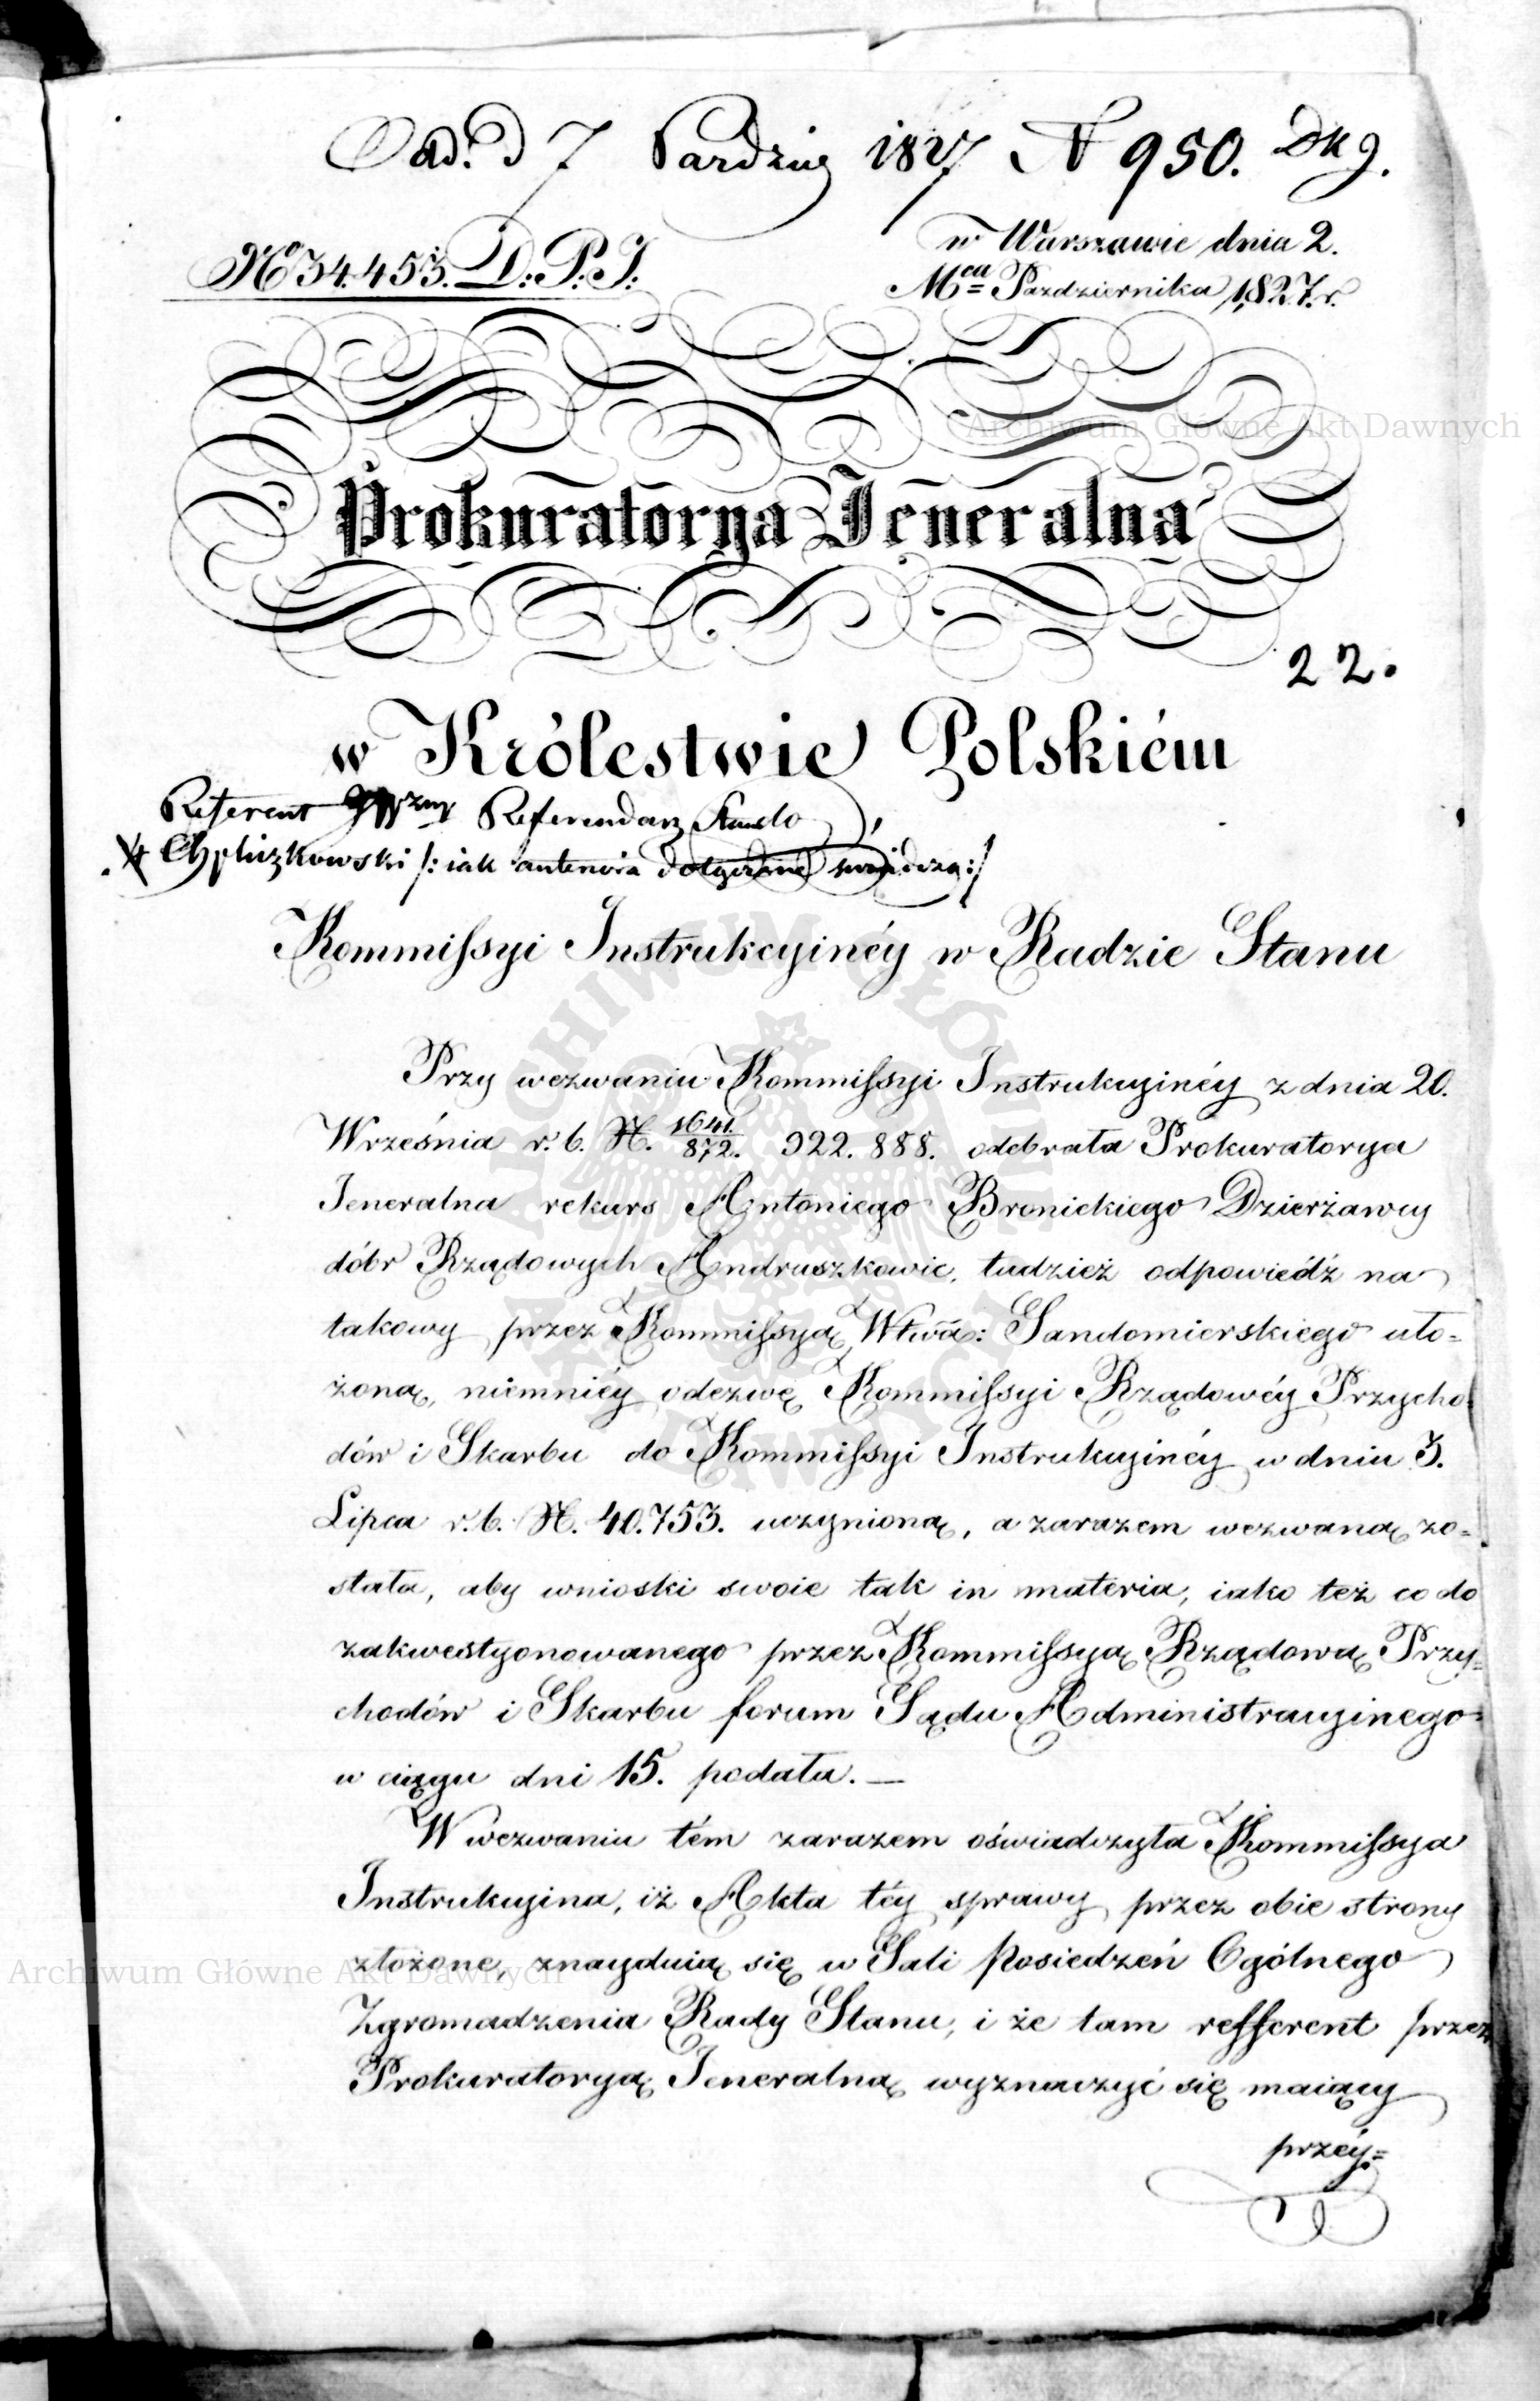 Od. d 7 Pardzier 1827 N 950. Dkg.
w Warszawie dnia 2.
No 34.453. D: P. J:
Mca Pazdziernika 1827. r.
Archiwum Główne Akt Dawnych
Prokuratorya Jeneralna
22.
w Królestwie Polskiém
Referent Referendarz Stanu
/: iak antenoia :/
Kommissyi Instrukcyinéy w Radzie Stanu
Przy wezwaniu Kommissyi Instrukcyinéy z dnia 20.
Września r. b. N. 1641./872. 922. 888. odebrała Prokuratorya
Jeneralna rekurs Antoniego Bronickiego Dzierżawcy
dóbr Rządowych Andruszkowic, tudzież odpowiédź na
takowy przez Kommissyą Wtwa: Sandomierskiego uło=
żoną, niemniéy odezwę Kommissyi Rządowéy Przycho=
dów i Skarbu do Kommissyi Instrukcyinéy w dniu 3.
Lipca r. b. N. 40.753. uczynioną, a zarazem wezwaną zo=
stała, aby wnioski swoie tak in materia, iako też co do
zakwestyonowanego przez Kommissyą Rządową Przy=
chodów i Skarbu forum Sądu Administracyinego
w ciągu dni 15. podała. —
W wezwaniu tém zarazem oświadczyła Kommissya
Instrukcyina, iż Akta téy sprawy przez obie strony
złożone, znayduią się w Sali Posiedzeń Ogólnego
Archiwum Główne Akt Dawnych
Zgromadzenia Rady Stanu, i że tam refferent przez
Prokuratoryą Jeneralną wyznaczyć się maiący
przéy=